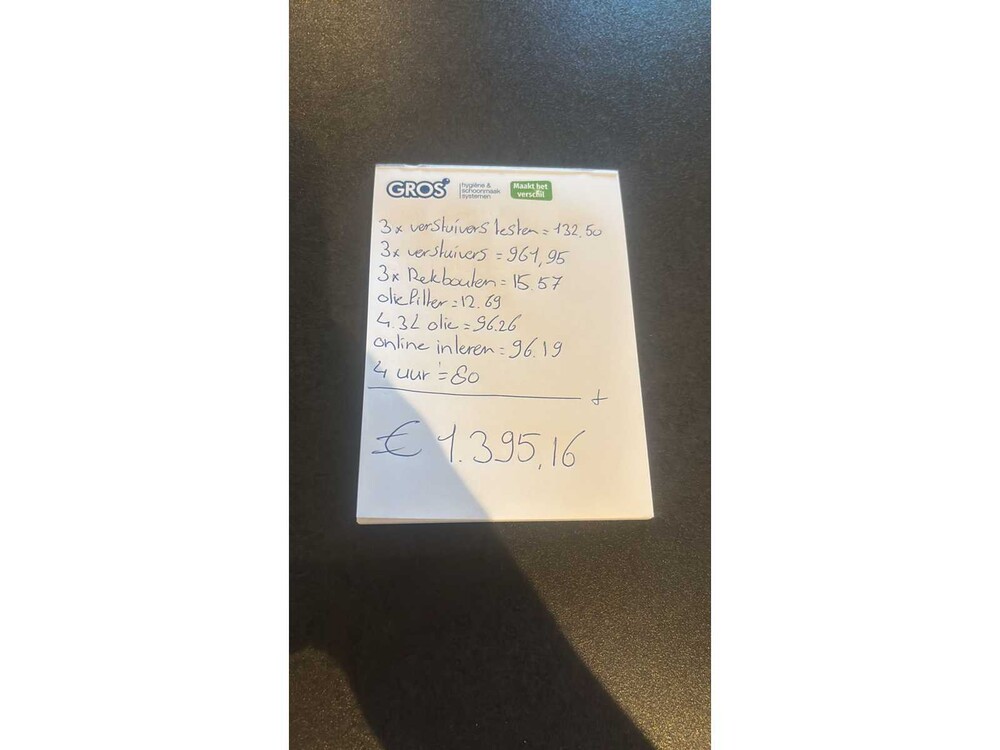 GROS
hygiëne &
schoonmaak
systemen
Maakt het
verschil
3x verstuivers testen = 132,50
3x verstuivers = 961,95
3x Rekbouten = 15.57
oliefilter = 12.69
4.3L olie = 96.26
online inleren = 96.19
4 uur = 80
+
€ 1.395,16